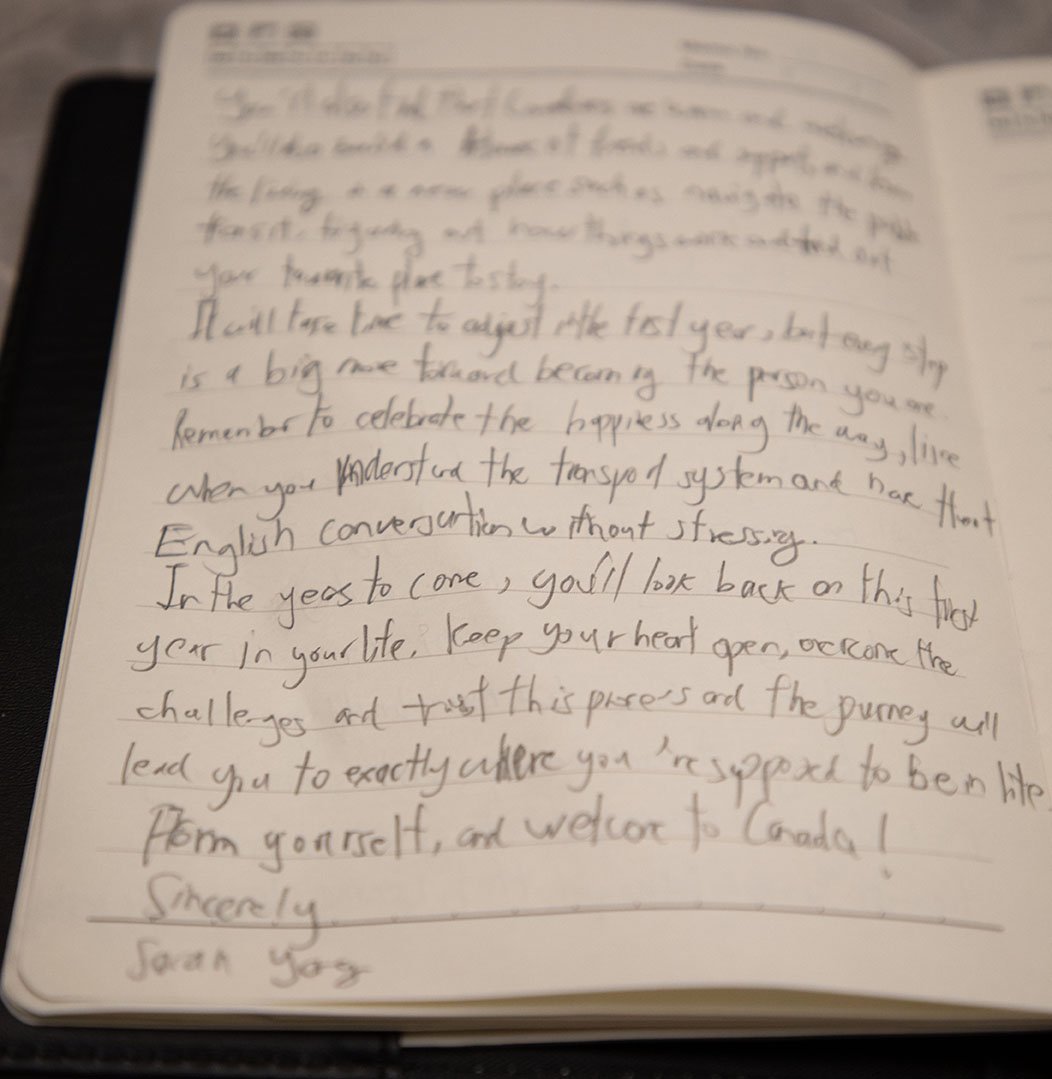 You'll also find that Canadians are warm and
You'll also build a of friends and support, and from
the living in a new place such as navigate the public
transit, figuring out how things work and find out
your favorite place to stay.
It will take time to adjust in the first year, but every step
is a big move forward becoming the person you are.
Remember to celebrate the happiness along the way, like
when you understand the transport system and have that
English conversation without stressing.
In the years to come, you'll look back on this first
year in your life. Keep your heart open, overcome the
challenges and trust this process and the journey will
lead you to exactly where you're supposed to be in life.
From yourself, and welcome to Canada!
Sincerely
Sarah